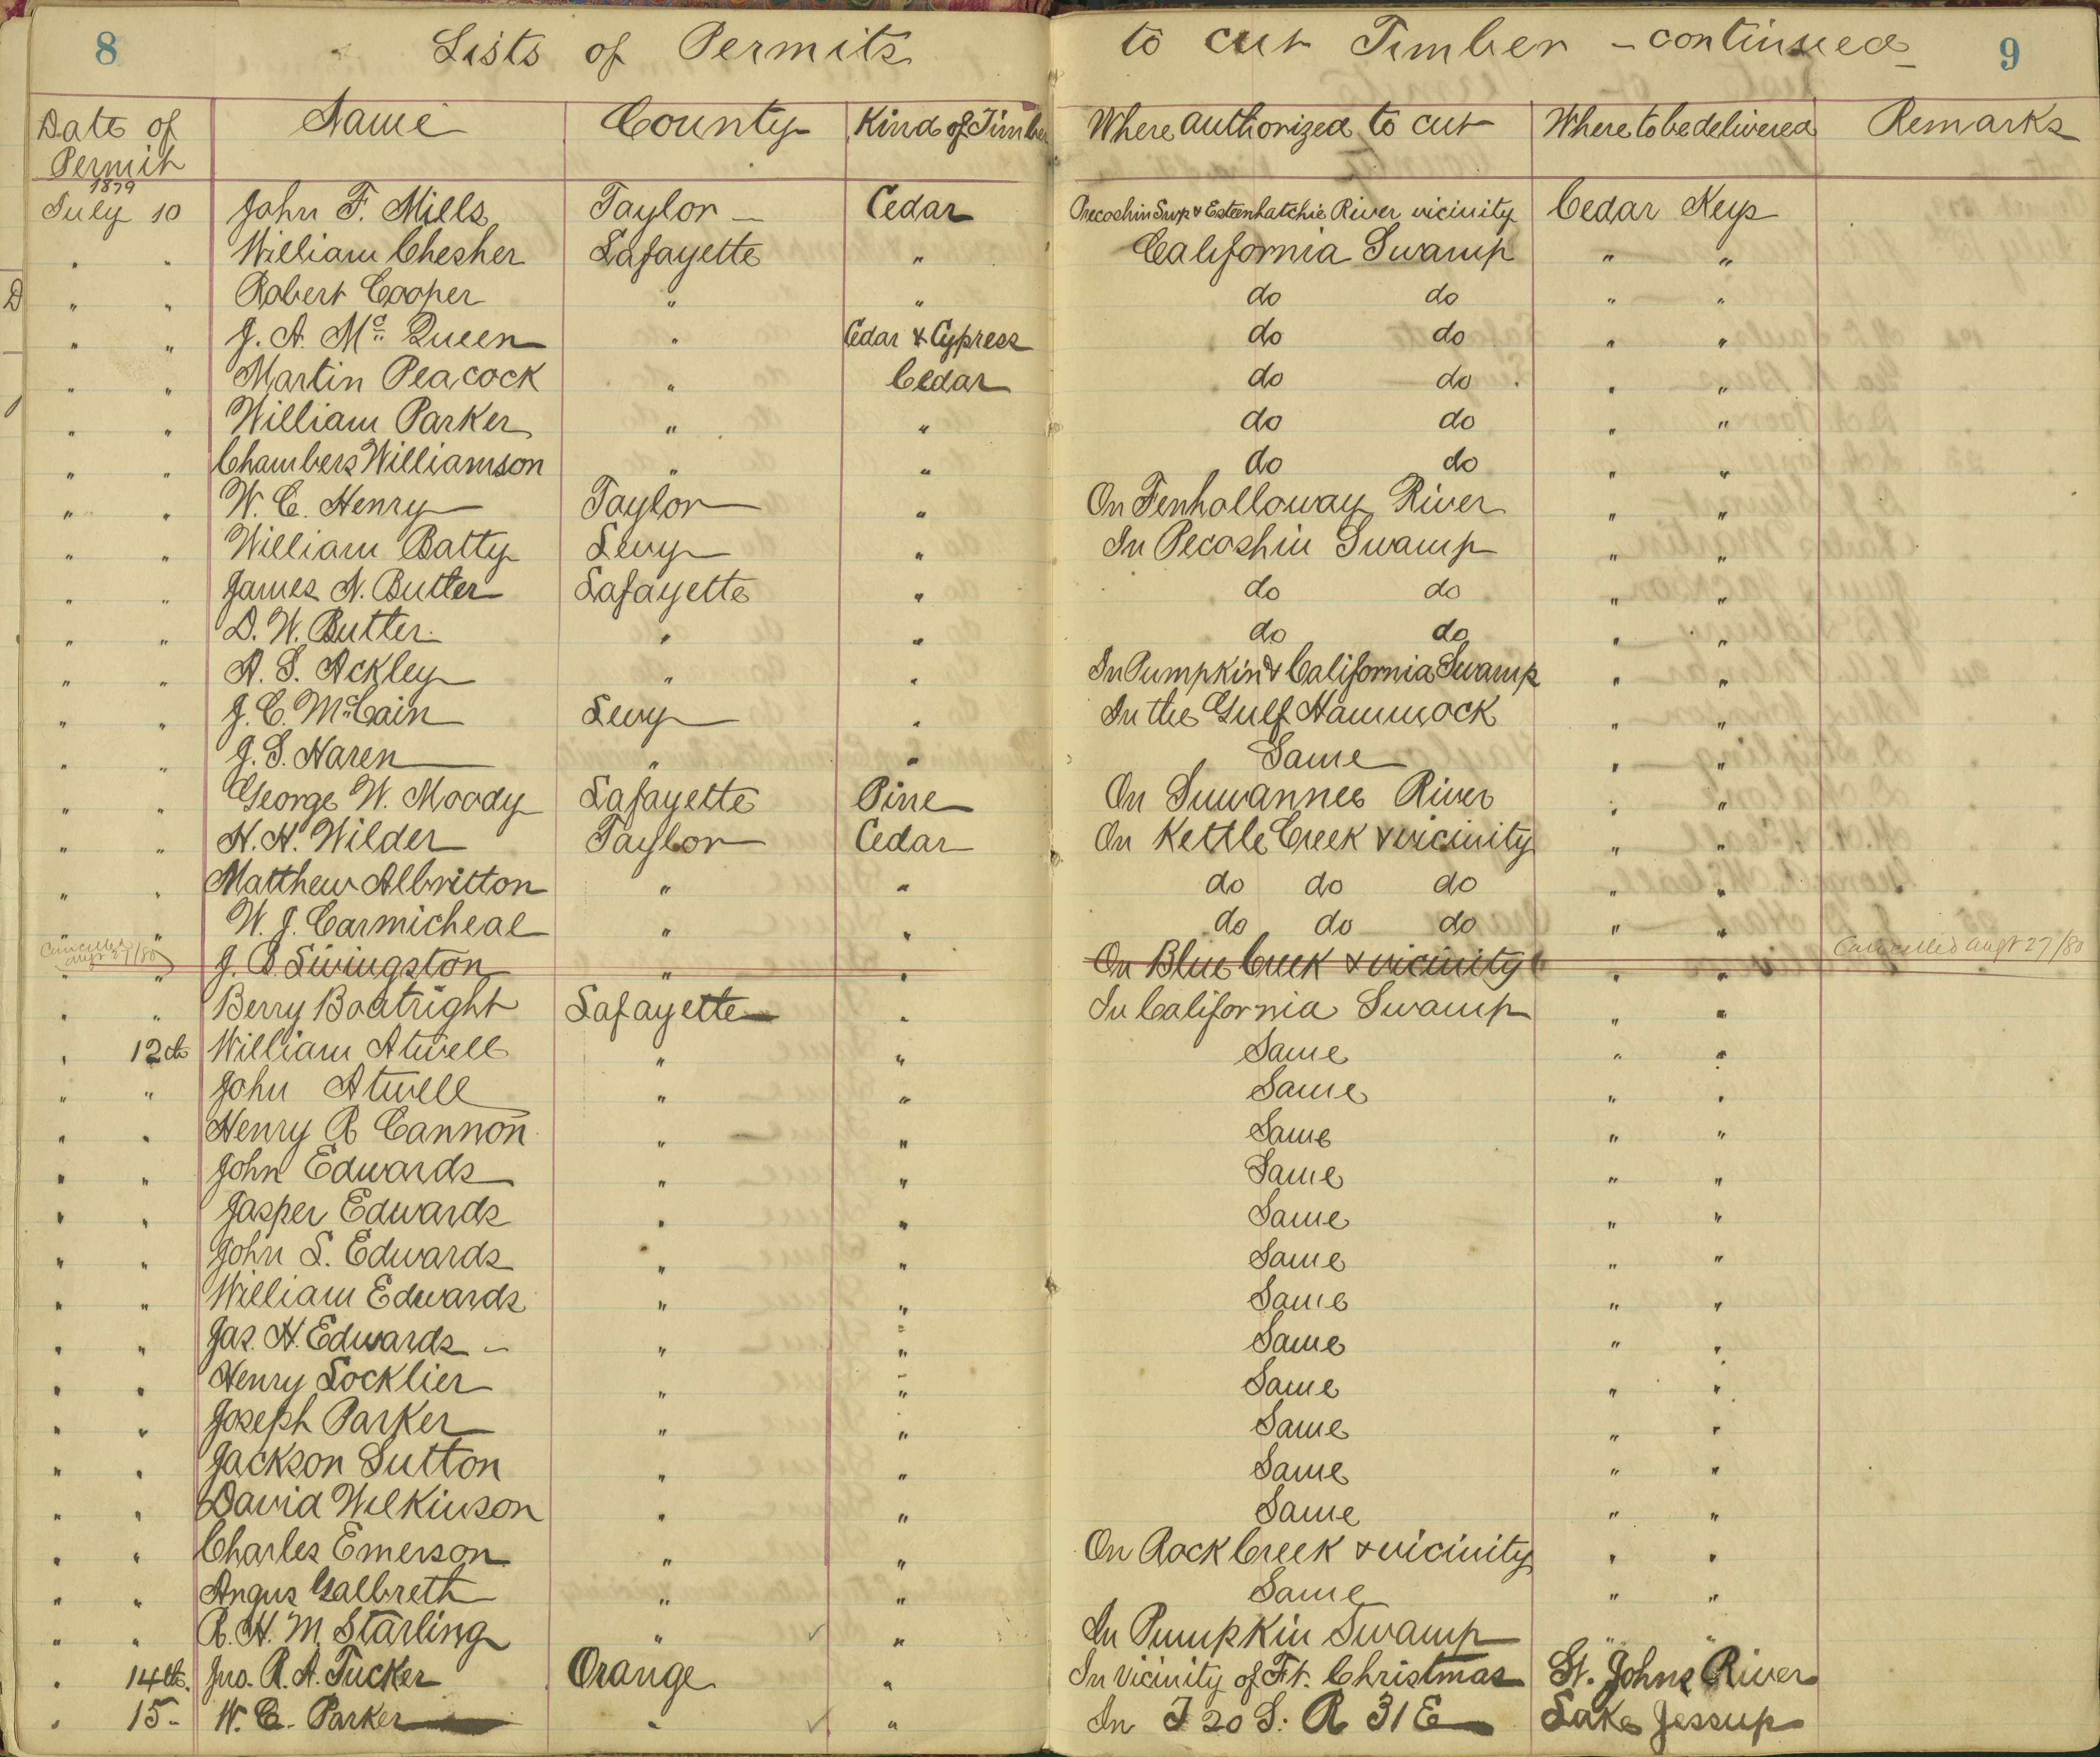 8 Lists of Permits to cut Timber - continued 9
Date of Permit Name County Kind of Timber Where authorized to cut Where to be delivered Remarks
1879
July 10 John F. Mills Taylor Cedar Pecoshin Swp & Esteenhatchie River vicinity Cedar Keys
" " William Chesher Lafayette " California Swamp " "
D " " Robert Cooper " " do do " "
" " J. A. McQueen " Cedar & Cypress do do " "
" " Martin Peacock " Cedar do do " "
" " William Parker " " do do " "
" " Chambers Williamson " " do do " "
" " W. C. Henry Taylor " On Fenholloway River " "
" " William Batty Levy " In Pecoshin Swamp " "
" " James N. Butler Lafayette " do do " "
" " D. W. Butler " " do do " "
" " A. S. Ackley " " In Pumpkin & California Swamp " "
" " J. C. McCain Levy " In the Gulf Hammock " "
" " J. S. Haren " " Same " "
" " George W. Moody Lafayette Pine On Suwannee River " "
" " H. H. Wilder Taylor Cedar On Kettle Creek & vicinity " "
" " Matthew Albritton " " do do do " "
" " W. J. Carmicheal " " do do do " "
Cancelled Augt 27/80
" " J. B. Livingston " " On Blue Creek & vicinity " " Cancelled Augt 27/80
" " Berry Boatright Lafayette " In California Swamp " "
" 12th William Atwell " " Same " "
" " John Atwell " " Same " "
" " Henry R Cannon " " Same " "
" " John Edwards " " Same " "
" " Jasper Edwards " " Same " "
" " John L. Edwards " " Same " "
" " William Edwards " " Same " "
" " Jas. H. Edwards " " Same " "
" " Henry Locklier " " Same " "
" " Joseph Parker " " Same " "
" " Jackson Sutton " " Same " "
" " David Wilkinson " " Same " "
" " Charles Emerson " " On Rock Creek & vicinity " "
" " Angus Galbreth " " Same " "
" " R. H. M. Starling " " In Pumpkin Swamp " "
" 14th. Jno. R. A. Tucker Orange " In vicinity of Ft. Christmas St. Johns River
" 15 - W. C. Parker " " In T 20 S. R 31 E Lake Jessup